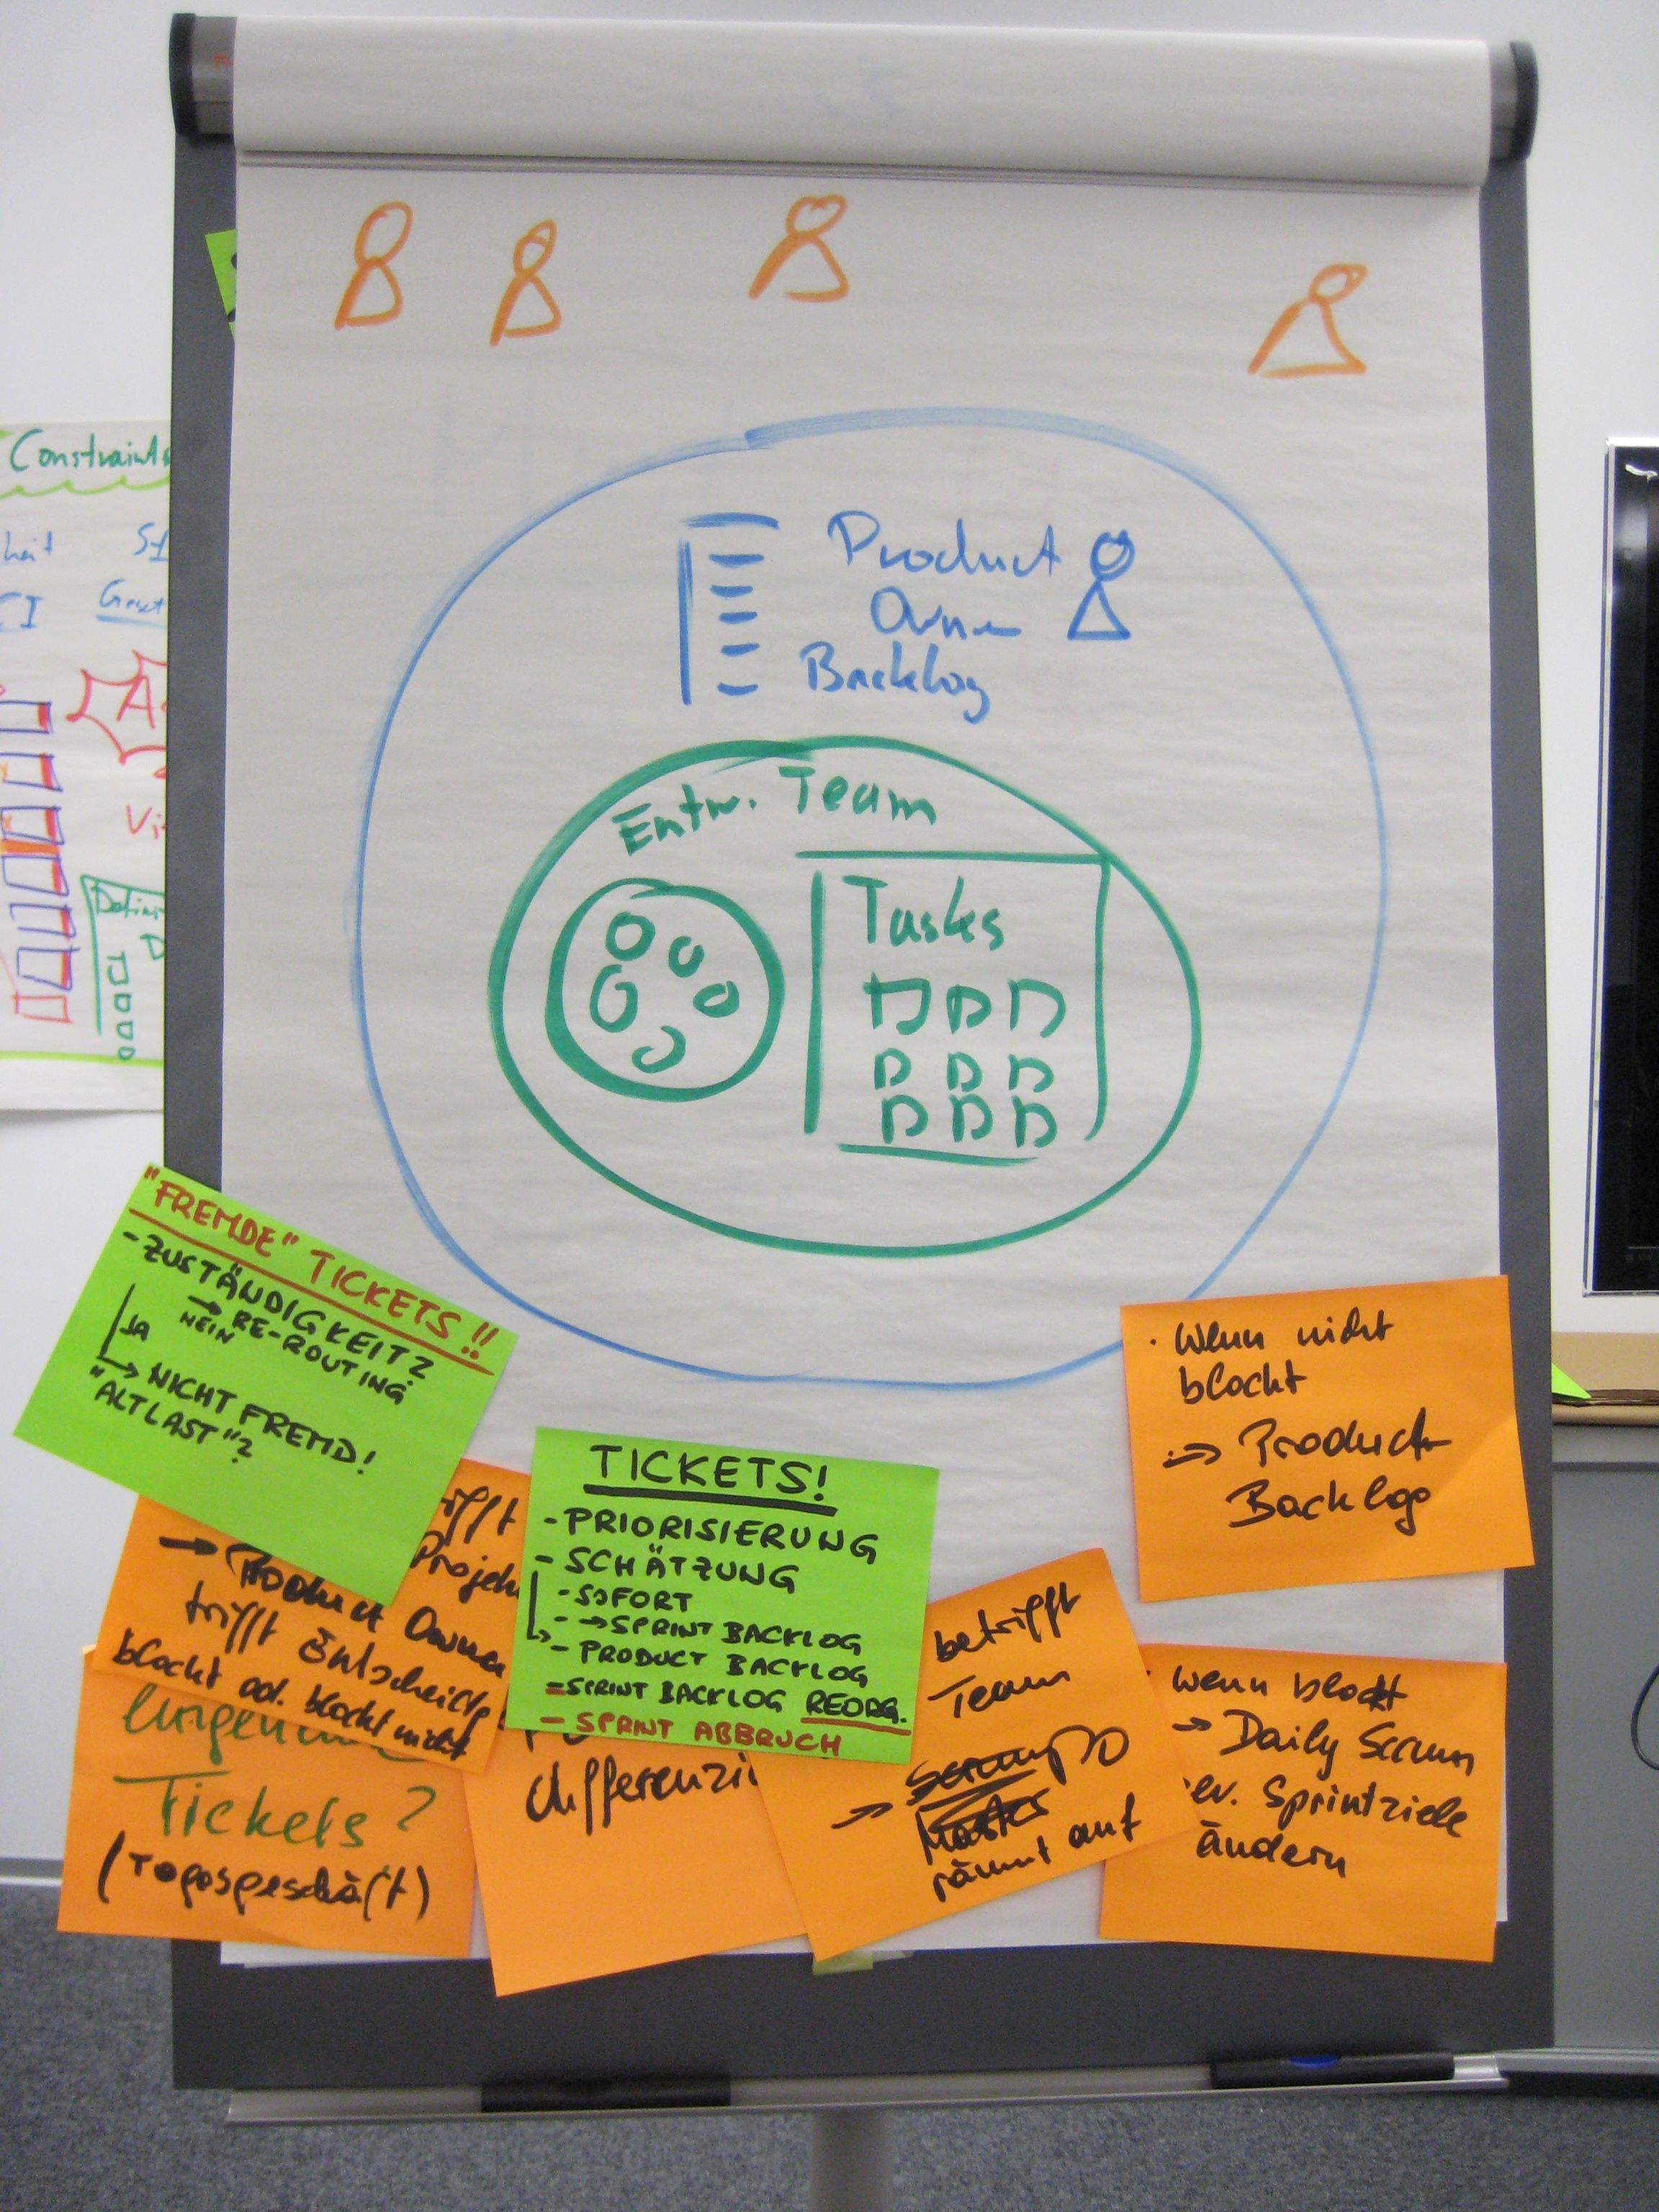 Constraints
CI
Product
Owner
Backlog
Entw. Team
Tasks
"FREMDE" TICKETS!!
- ZUSTÄNDIGKEIT?
→ RE-ROUTING
NEIN
JA
→ NICHT FREMD!
"ALTLAST"?
TICKETS!
- PRIORISIERUNG
- SCHÄTZUNG
- SOFORT
- → SPRINT BACKLOG
- PRODUCT BACKLOG
- SPRINT BACKLOG REORG.
- SPRINT ABBRUCH
· Wenn nicht
blockt
→ Product
Backlog
→ Product Owner
trifft Entscheid,
blockt od. blockt nicht
Tickets?
(Tagesgeschäft)
betrifft
Team
→ PO
räumt auf
· wenn blockt
→ Daily Scrum
· ev. Sprintziele
ändern